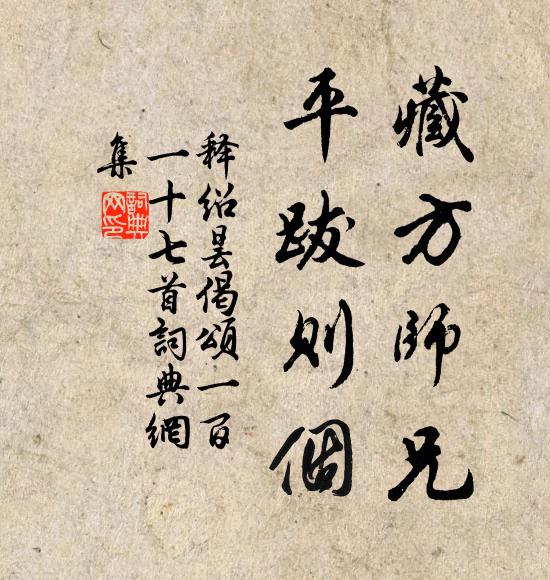 藏方師兄
平跋則個
釋紹曇偈頌一百
一十七首詞典網
集
詞典網印